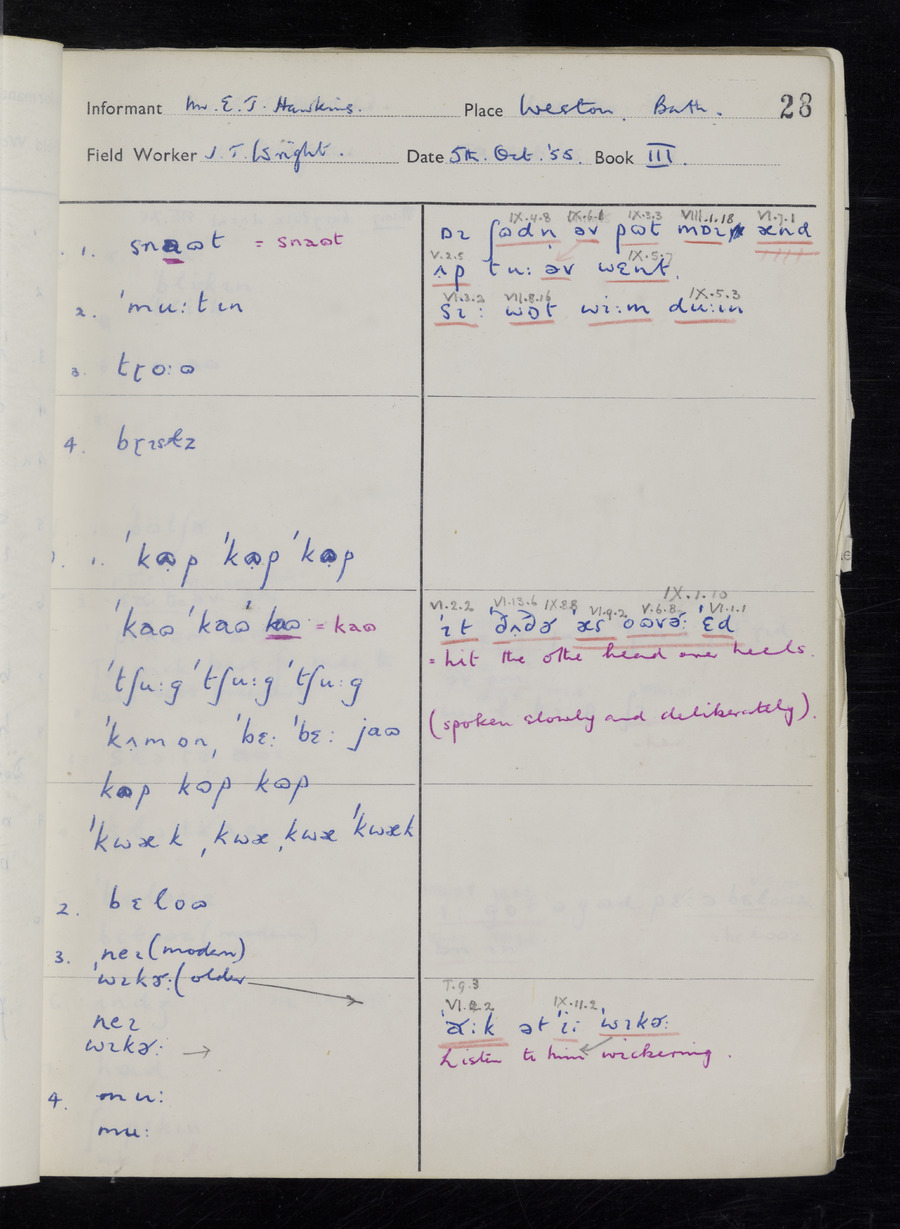 Informant Mr. E. J. Hawkins. Place Weston, Bath. 28
Field Worker J. T. Wright. Date 5th. Oct. '55. Book III.
1. snaɷt = snaɷt
2. ˈmu:tɪn
3. tɽo:ɷ
4.
1. ˈkɷp ˈkɷp ˈkɷp
ˈkaɷ ˈkaɷ kaɷ = kaɷ
ˈtʃu:g ˈtʃu:g ˈtʃu:g
ˈkʌmɒn, ˈbɛ: ˈbɛ: jaɷ
kɷp kɷp kɷp
ˈkwæk, kwæ, kwæ ˈkwæk
2. bɛloɷ
3. neɪ (modern)
ˈwɪkɚ: (older
neɪ
wɪkɚ:
4. mu:
mu:
IX.4.8 IX.6.6 IX.3.3 VIII.1.18 VI.7.1
ʃɷdn əv pɷt ænd
V.2.5 IX.5.7
ʌp tu: əv wɛnt.
VI.3.2 VII.8.16 IX.5.3
sɪ: wɒt wi:m du:ɪn
IX.1.10
VI.2.2 VI.13.6 VI.9.2 V.6.8 VI.1.1
ˈɪt ˈɛd
= hit the othe head over heels.
(spoken slowly and deliberately).
VI.2.2 IX.11.2
ət ˈi: ˈwɪkɚ:
Listen to him wickering.